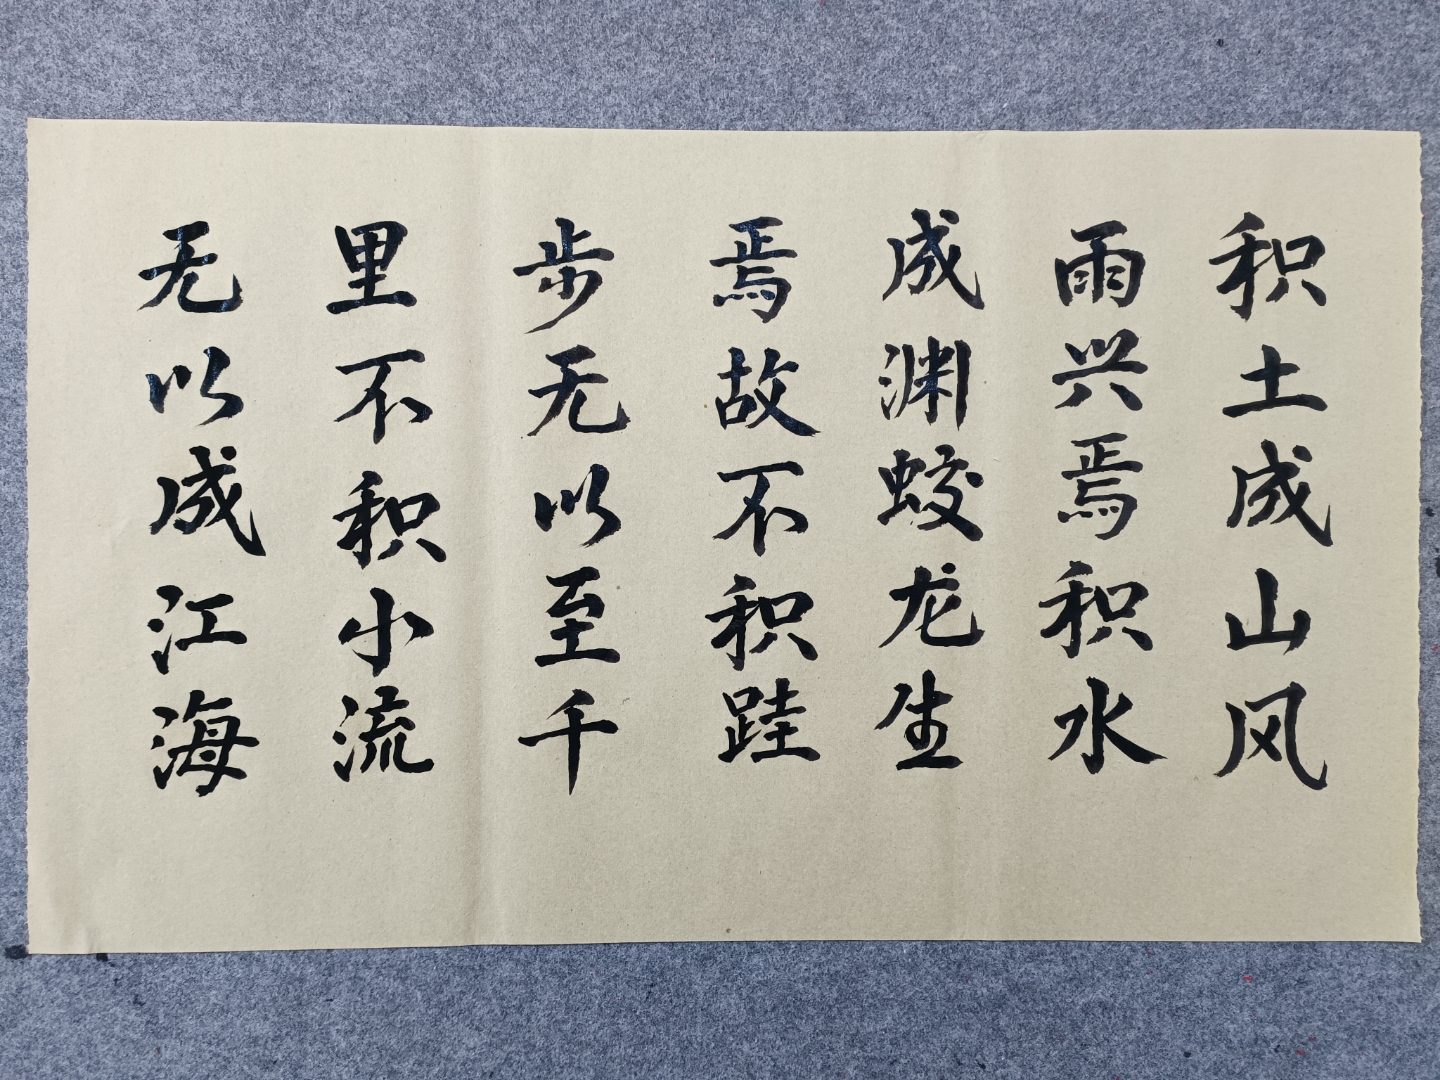 积土成山风
雨兴焉积水
成渊蛟龙生
焉故不积跬
步无以至千
里不积小流
无以成江海